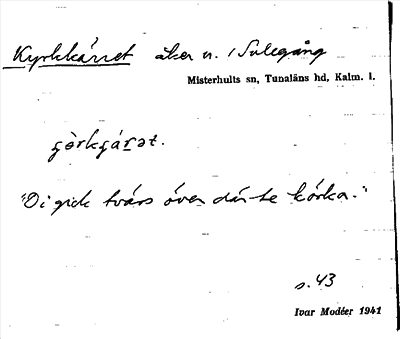 Kyrkkärret åker n. i Sulegång
Misterhults sn, Tunaläns hd, Kalm. l.
çòrkçárət.
"Di gick tvärs över där te körka."
s. 43
Ivar Modéer 1941